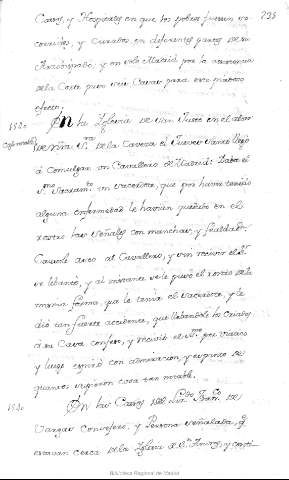 235
Casas, y Hospitales en que los pobres fuessen so
corridos, y Curados, en diferentes partes de su
Arzobispado; y en sola Madrid por la assistencia
de la Corte puso seis Casas para este piadoso
efecto.
En la Yglesia de San Justo en el altar
de nra S.ra de la Caveza el Jueves Santo llegó
á comulgar un Cavallero de Madrid: Daba el
S.mo Sacram.to un sacerdote, que por haver tenido
alguna enfermedad le havian quedado en el
rostro las señales con manchas, y fealdad.
Causole asco al Cavallero, y sin recivir el S.r
se lebantó, y al instante se le puso el rostro de la
misma forma, que le tenia el sacerdote, y le
dió tan fuerte accidente, que llebandole los Criados
á su Casa confesó, y recivió el S.mo por Viatico
y luego espiró con admiracion, y espanto de
quantos supieron cosa tan notable.
En las Casas del Liz.do Fran.co de
Vargas Consejero, y Persona señalada, q.e
estavan cerca de la Yglesia de S.n Andres, y
Biblioteca Regional de Madrid